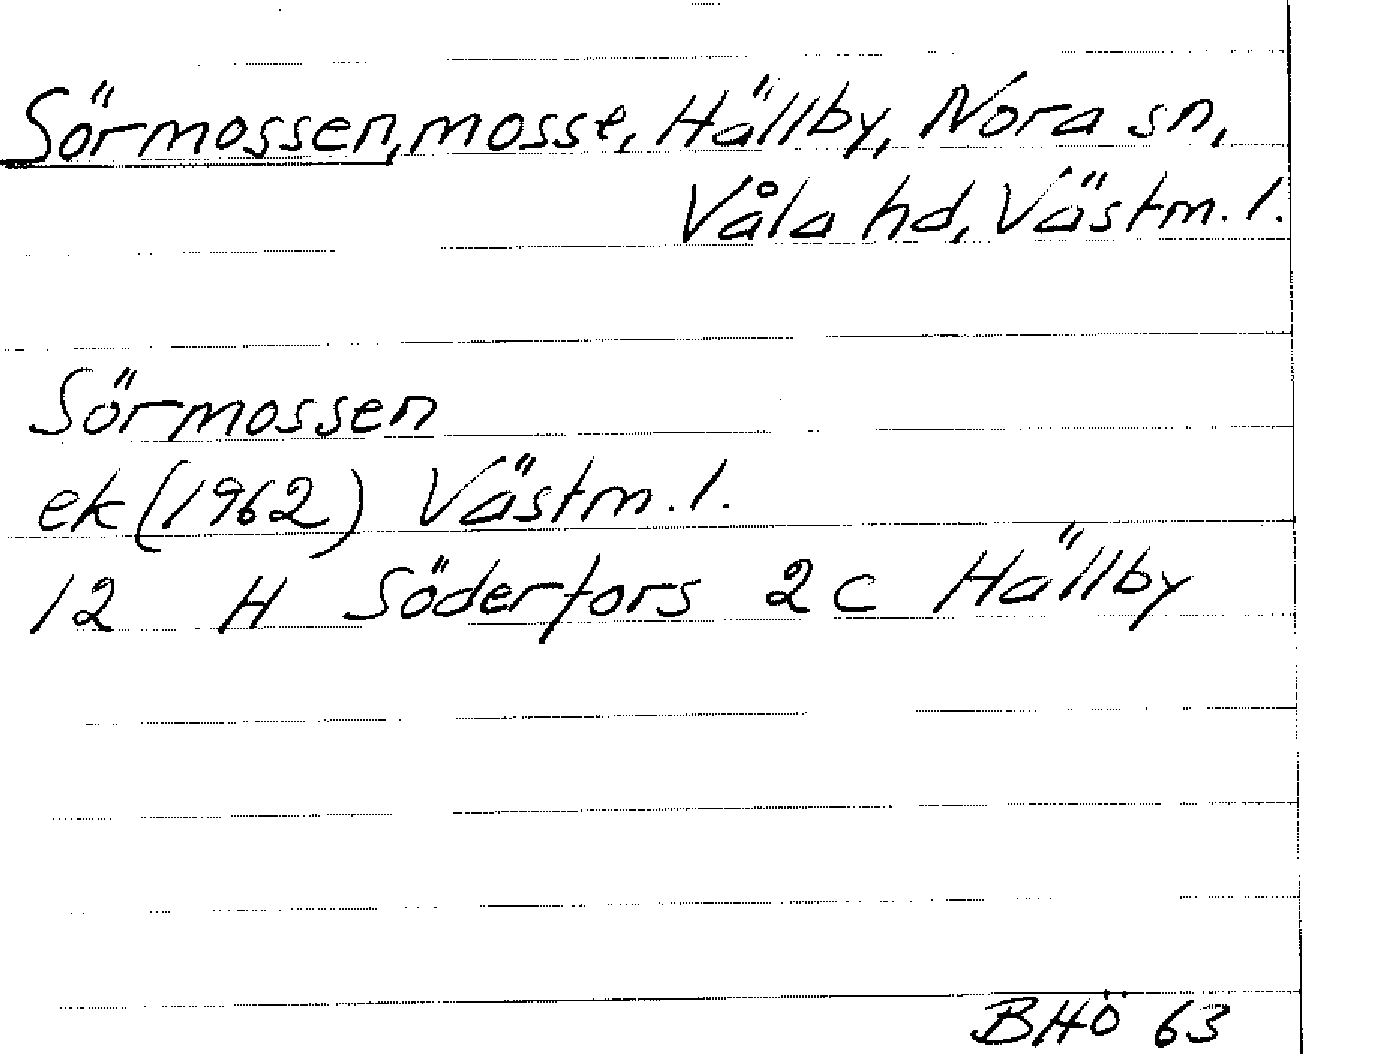 Sörmossen, mosse, Hällby, Nora sn,
Våla hd, Västm. l.
Sörmossen
ek (1962) Västm. l.
12 H Söderfors 2 c Hällby
BHÖ 63